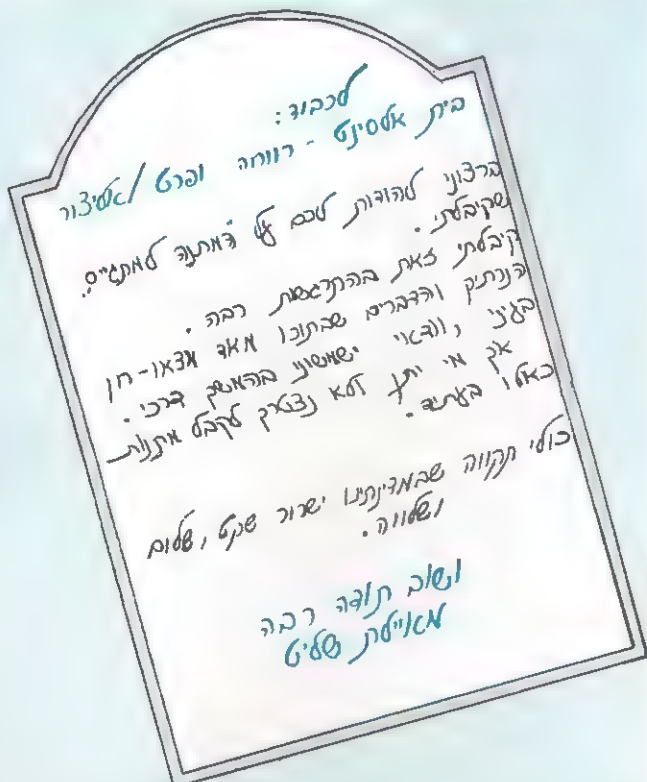 לכבוד:
בית אלסינט - רווחה ופרט / אליצור
ברצוני להודות לכם על "המתנה למתגייס"
שקיבלתי.
קיבלתי זאת בהתרגשות רבה.
הנרתיק והדברים שבתוכו מאד מצאו-חן
בעיני, וודאי ישמשוני בהמשך דרכי.
אך מי יתן ולא נצטרך לקבל מתנות
כאלו בעתיד.
כולי תקווה שבמדינתינו ישרור שקט, שלום
ושלווה.
ושוב תודה רבה
מאיילת שליט